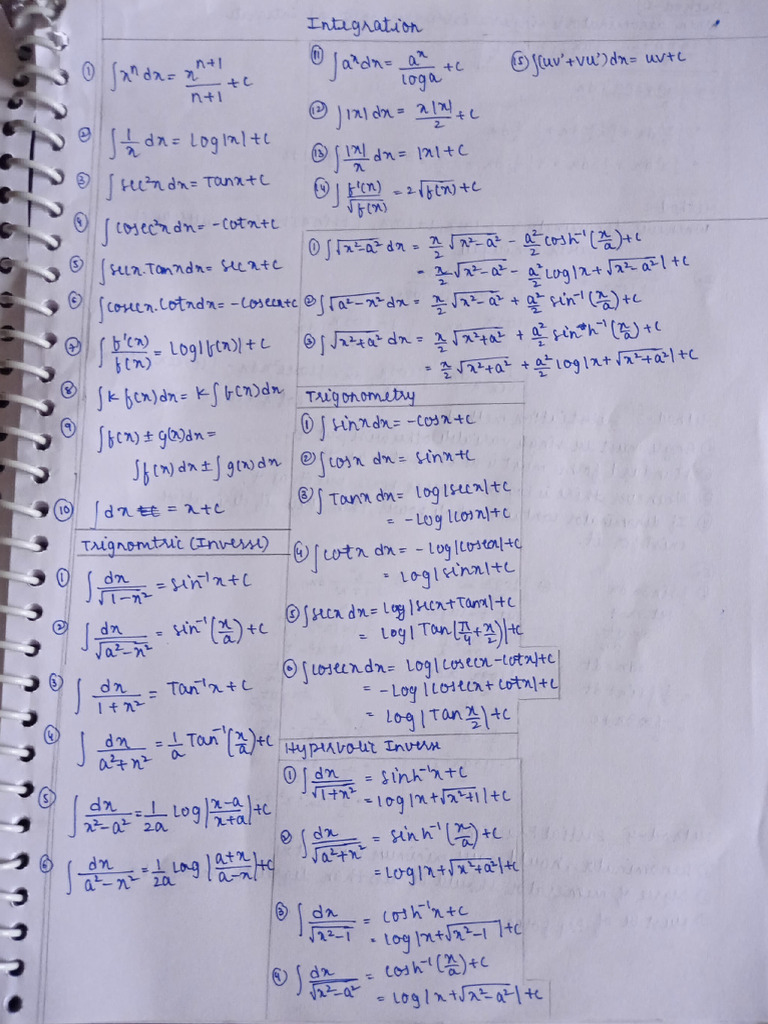 Integration
① ∫xⁿ dx = xⁿ⁺¹/(n+1) + c
② ∫1/x dx = Log|x| + c
③ ∫sec²x dx = Tanx + c
④ ∫cosec²x dx = -cotx + c
⑤ ∫secx.Tanx dx = secx + c
⑥ ∫cosecx.Cotx dx = -Cosecx + c
⑦ ∫f'(x)/f(x) = Log|f(x)| + c
⑧ ∫K f(x) dx = K∫f(x) dx
⑨ ∫f(x) ± g(x) dx =
∫f(x) dx ± ∫g(x) dx
⑩ ∫dx = x + c
⑪ ∫aˣ dx = aˣ/loga + c
⑫ ∫|x| dx = x|x|/2 + c
⑬ ∫|x|/x dx = |x| + c
⑭ ∫f'(x)/√f(x) = 2√f(x) + c
⑮ ∫(uv' + vu') dx = uv + c
① ∫√(x²-a²) dx = x/2 √(x²-a²) - a²/2 cosh⁻¹(x/a) + c
= x/2 √(x²-a²) - a²/2 Log|x+√(x²-a²)| + c
② ∫√(a²-x²) dx = x/2 √(x²-a²) + a²/2 sin⁻¹(x/a) + c
③ ∫√(x²+a²) dx = x/2 √(x²+a²) + a²/2 sinh⁻¹(x/a) + c
= x/2 √(x²+a²) + a²/2 log|x+√(x²+a²)| + c
Trigonometry
① ∫sinx dx = -cosx + c
② ∫cosx dx = sinx + c
③ ∫Tanx dx = log|secx| + c
= -Log|cosx| + c
④ ∫cotx dx = -log|cosecx| + c
= Log|sinx| + c
⑤ ∫secx dx = Log|secx+Tanx| + c
= Log|Tan(π/4 + x/2)| + c
⑥ ∫cosecx dx = Log|cosecx-cotx| + c
= -Log|cosecx+cotx| + c
= Log|Tan x/2| + c
Trignomtric (Inverse)
① ∫dx/√(1-x²) = sin⁻¹x + c
② ∫dx/√(a²-x²) = sin⁻¹(x/a) + c
③ ∫dx/(1+x²) = Tan⁻¹x + c
④ ∫dx/(a²+x²) = 1/a Tan⁻¹(x/a) + c
⑤ ∫dx/(x²-a²) = 1/2a Log|(x-a)/(x+a)| + c
⑥ ∫dx/(a²-x²) = 1/2a Log|(a+x)/(a-x)| + c
Hyperbolic Inverse
① ∫dx/√(1+x²) = sinh⁻¹x + c
= log|x+√(x²+1)| + c
② ∫dx/√(a²+x²) = sinh⁻¹(x/a) + c
= Log|x+√(x²+a²)| + c
③ ∫dx/√(x²-1) = cosh⁻¹x + c
= log|x+√(x²-1)| + c
④ ∫dx/√(x²-a²) = cosh⁻¹(x/a) + c
= Log|x+√(x²-a²)| + c